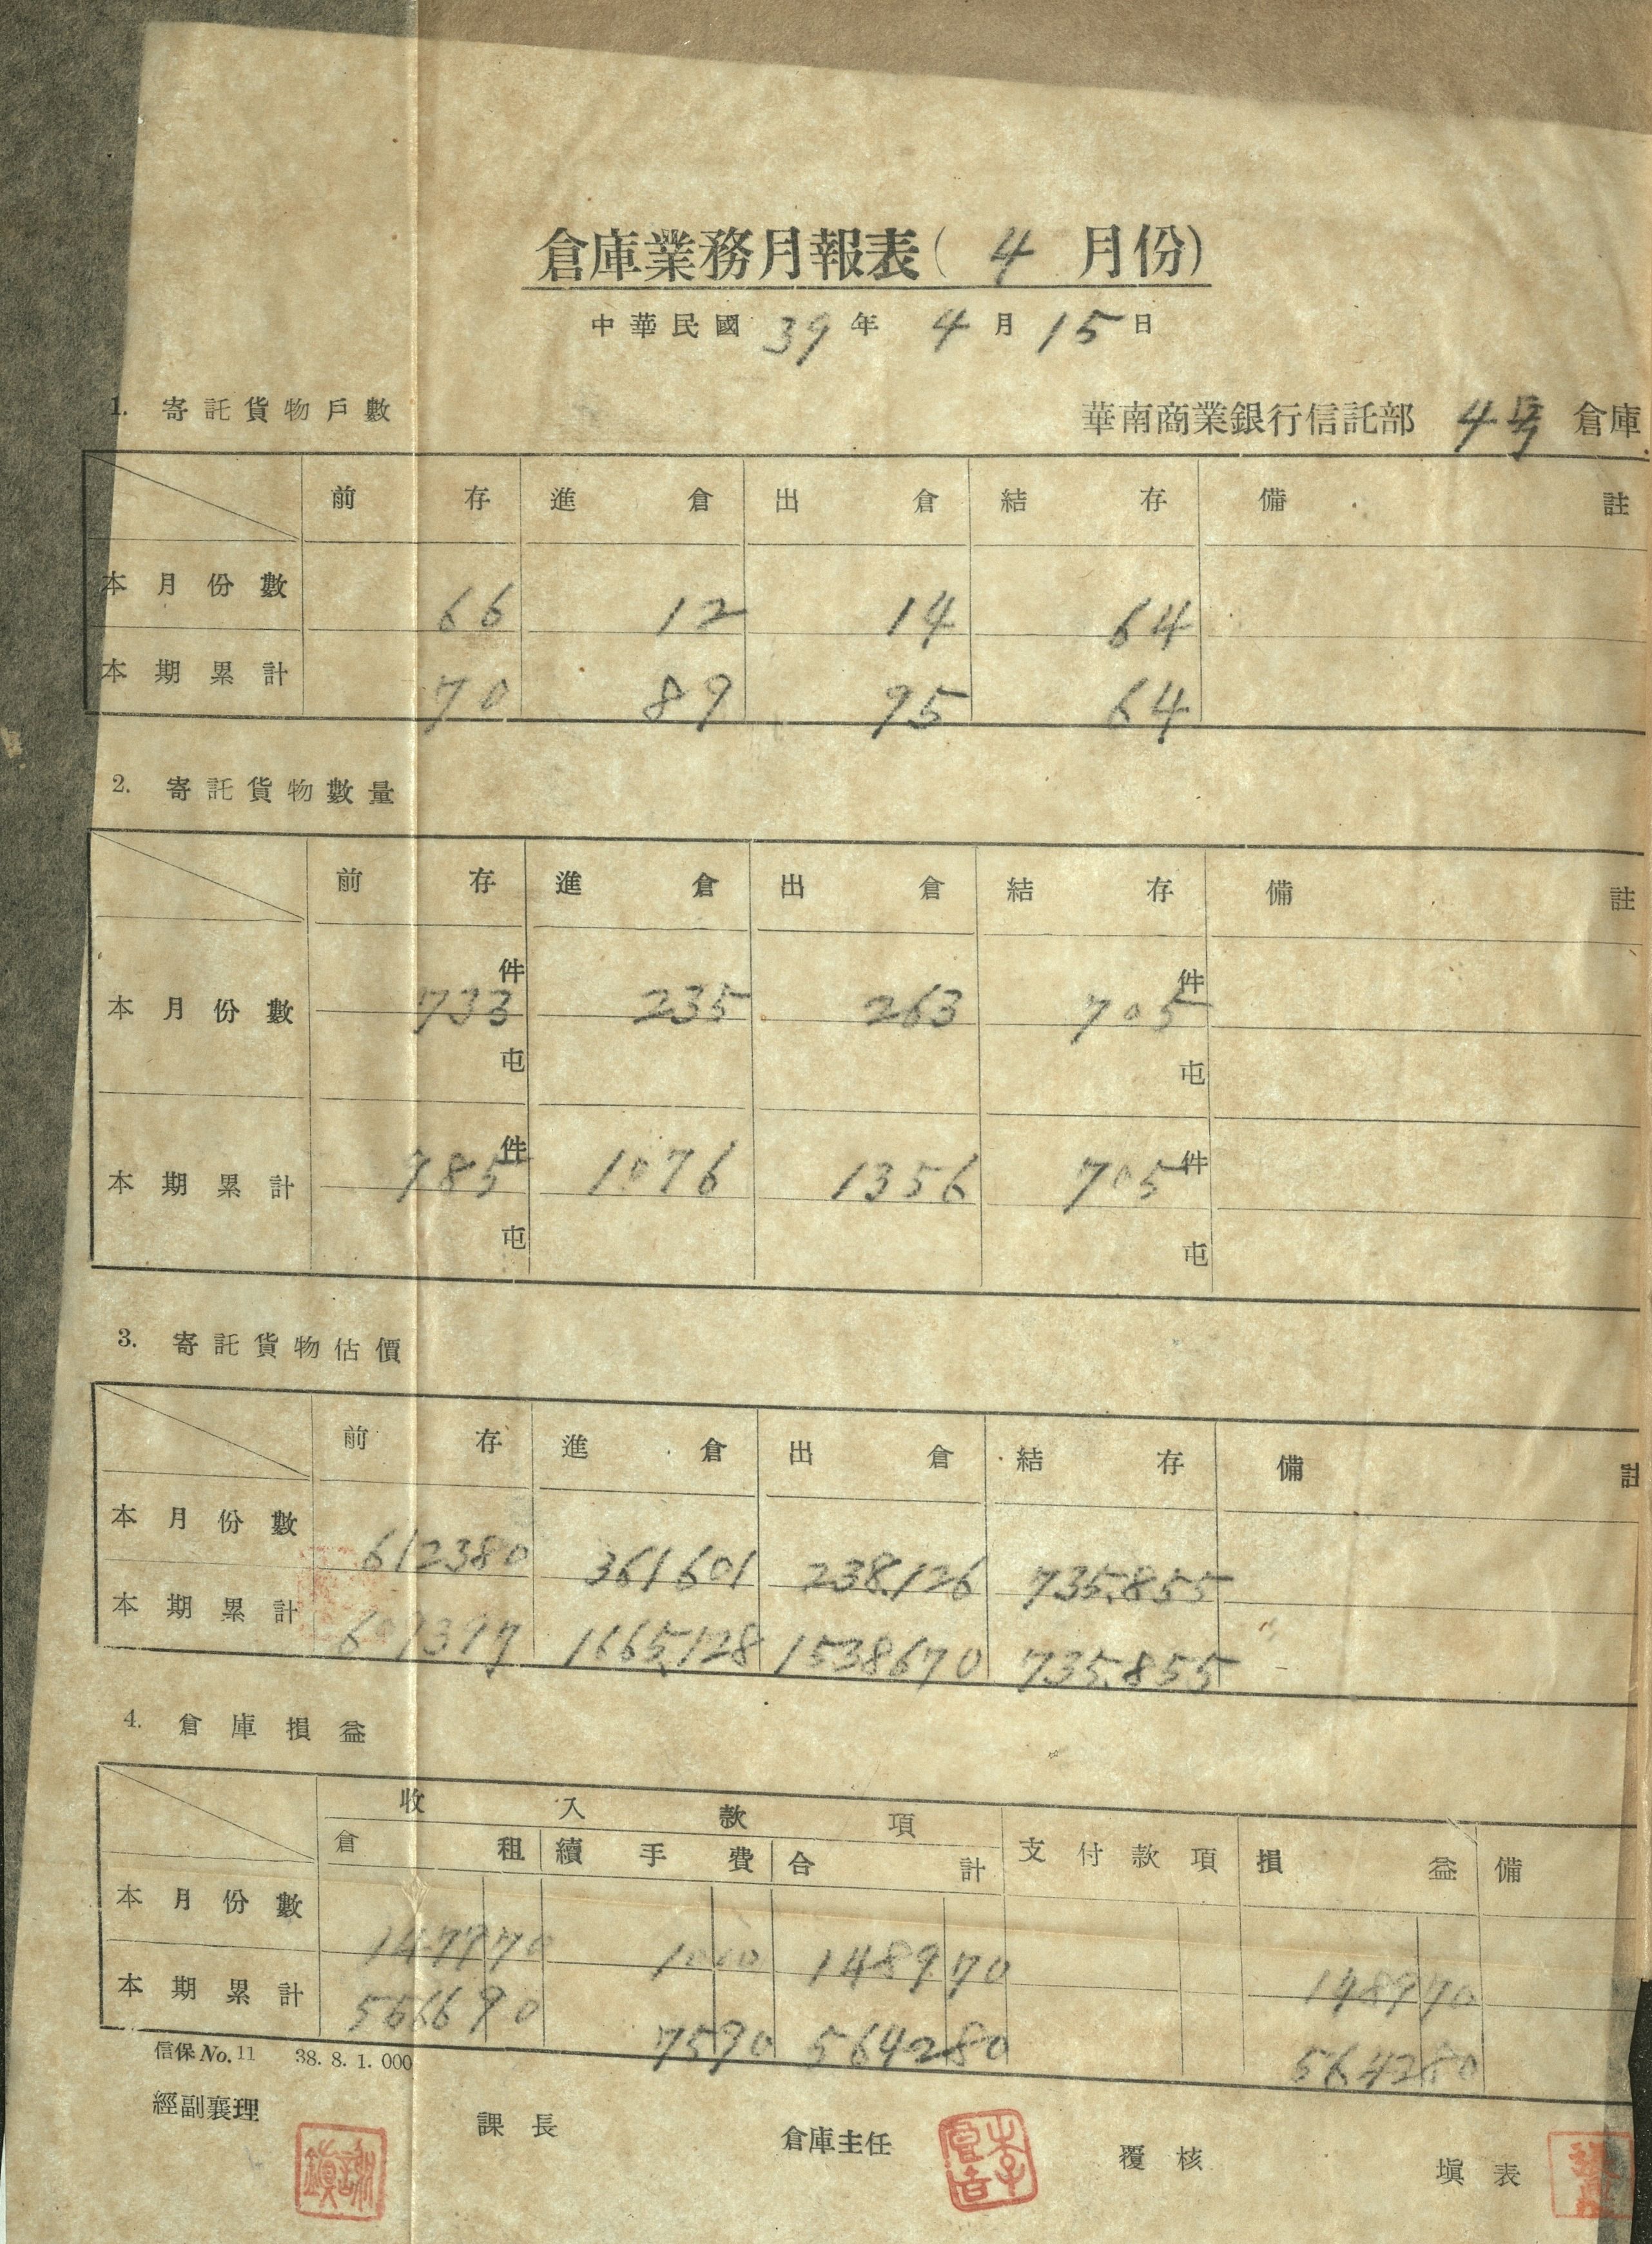 倉庫業務月報表( 4 月份)
中華民國 39 年 4 月 15 日
1. 寄託貨物戶數
華南商業銀行信託部 4号 倉庫
前存 進倉 出倉 結存 備註
本月份數 66 12 14 64
本期累計 70 89 95 64
2. 寄託貨物數量
前存 進倉 出倉 結存 備註
件 件
本月份數 733 235 263 705
屯 屯
件 件
本期累計 785 1076 1356 705
屯 屯
3. 寄託貨物估價
前存 進倉 出倉 結存 備註
本月份數 612380 361601 238,126 735,855
本期累計 1665,128 1538670 735,855
4. 倉庫損益
收入款項 支付款項 損益 備
倉租 續手費 合計
本月份數 147970 1000 148970 148970
本期累計 7590 564280 564280
信保 No. 11 38. 8. 1. 000
經副襄理 課長 倉庫主任 覆核 塡表